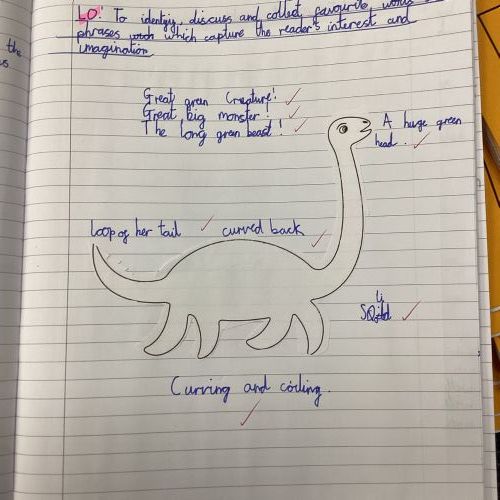 LO: To identify, discuss and collect favourite words
phrases which capture the reader's interest and
imagination
the
Great green Creature!
Great big monster!
The long green beast!
A huge green
head.
loop of her tail
curved back
Curving and coiling.